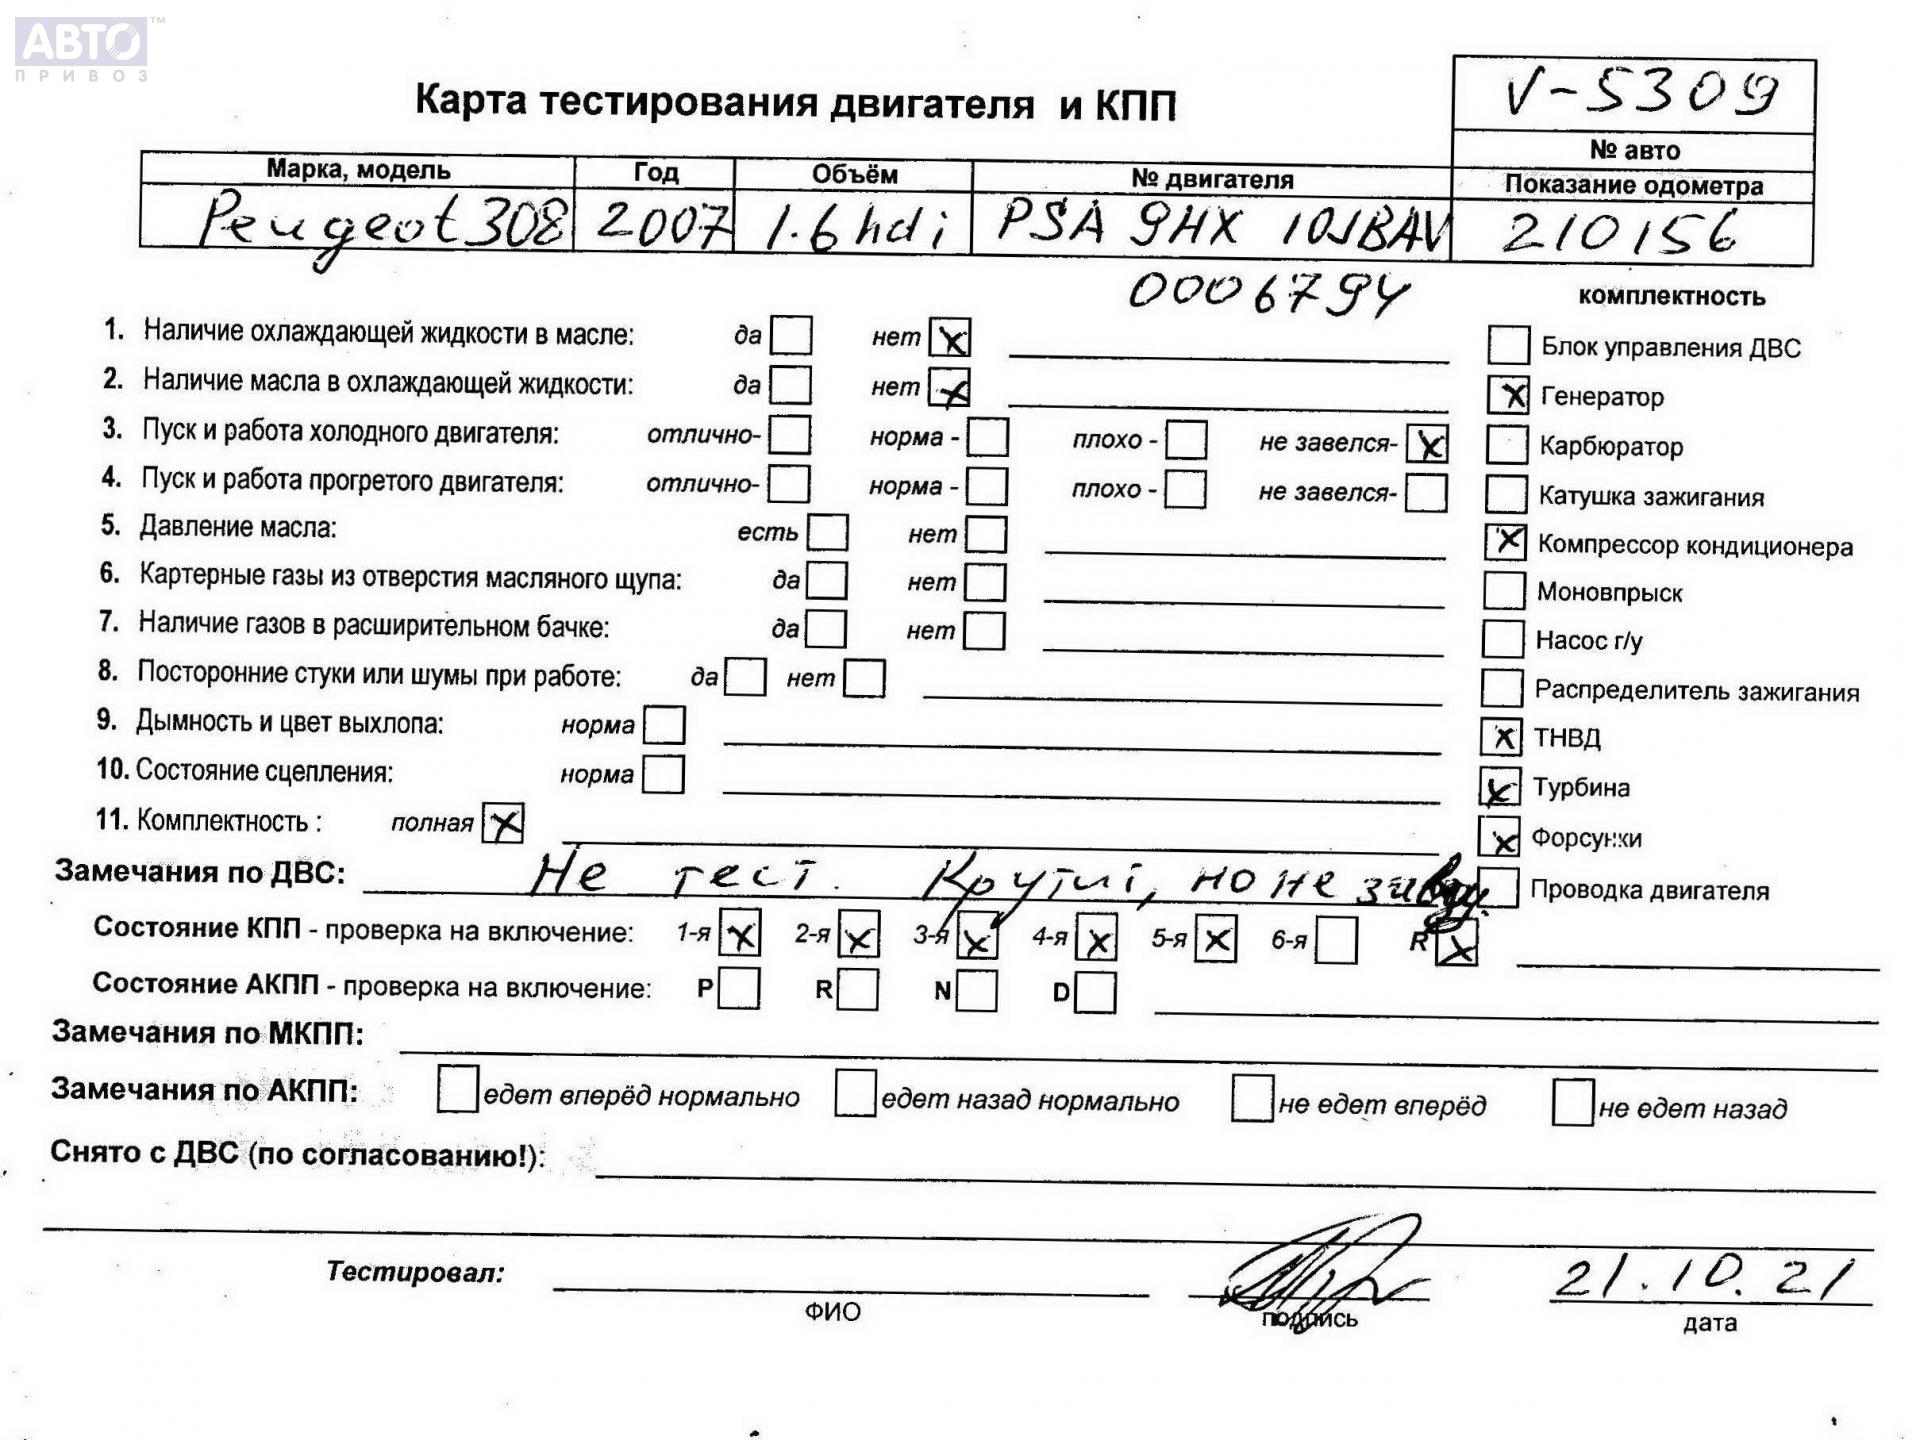 АВТО™
ПРИВОЗ
Карта тестирования двигателя и КПП
V-5309
№ авто
Марка, модель Год Объём № двигателя Показание одометра
Peugeot 308 2007 1.6 hdi PSA 9HX 10JBAV 210156
0006794
комплектность
1. Наличие охлаждающей жидкости в масле: да нет x
Блок управления ДВС
2. Наличие масла в охлаждающей жидкости: да нет x
x Генератор
3. Пуск и работа холодного двигателя: отлично- норма - плохо - не завелся- x
Карбюратор
4. Пуск и работа прогретого двигателя: отлично- норма - плохо - не завелся-
Катушка зажигания
5. Давление масла: есть нет
x Компрессор кондиционера
6. Картерные газы из отверстия масляного щупа: да нет
Моновпрыск
7. Наличие газов в расширительном бачке: да нет
Насос г/у
8. Посторонние стуки или шумы при работе: да нет
Распределитель зажигания
9. Дымность и цвет выхлопа: норма
x ТНВД
10. Состояние сцепления: норма
x Турбина
11. Комплектность : полная x
x Форсунки
Замечания по ДВС: Не тест. Крутит, но не
Проводка двигателя
Состояние КПП - проверка на включение: 1-я x 2-я x 3-я x 4-я x 5-я x 6-я R x
Состояние АКПП - проверка на включение: P R N D
Замечания по МКПП:
Замечания по АКПП: едет вперёд нормально едет назад нормально не едет вперёд не едет назад
Снято с ДВС (по согласованию!):
Тестировал: 21.10.21
ФИО подпись дата